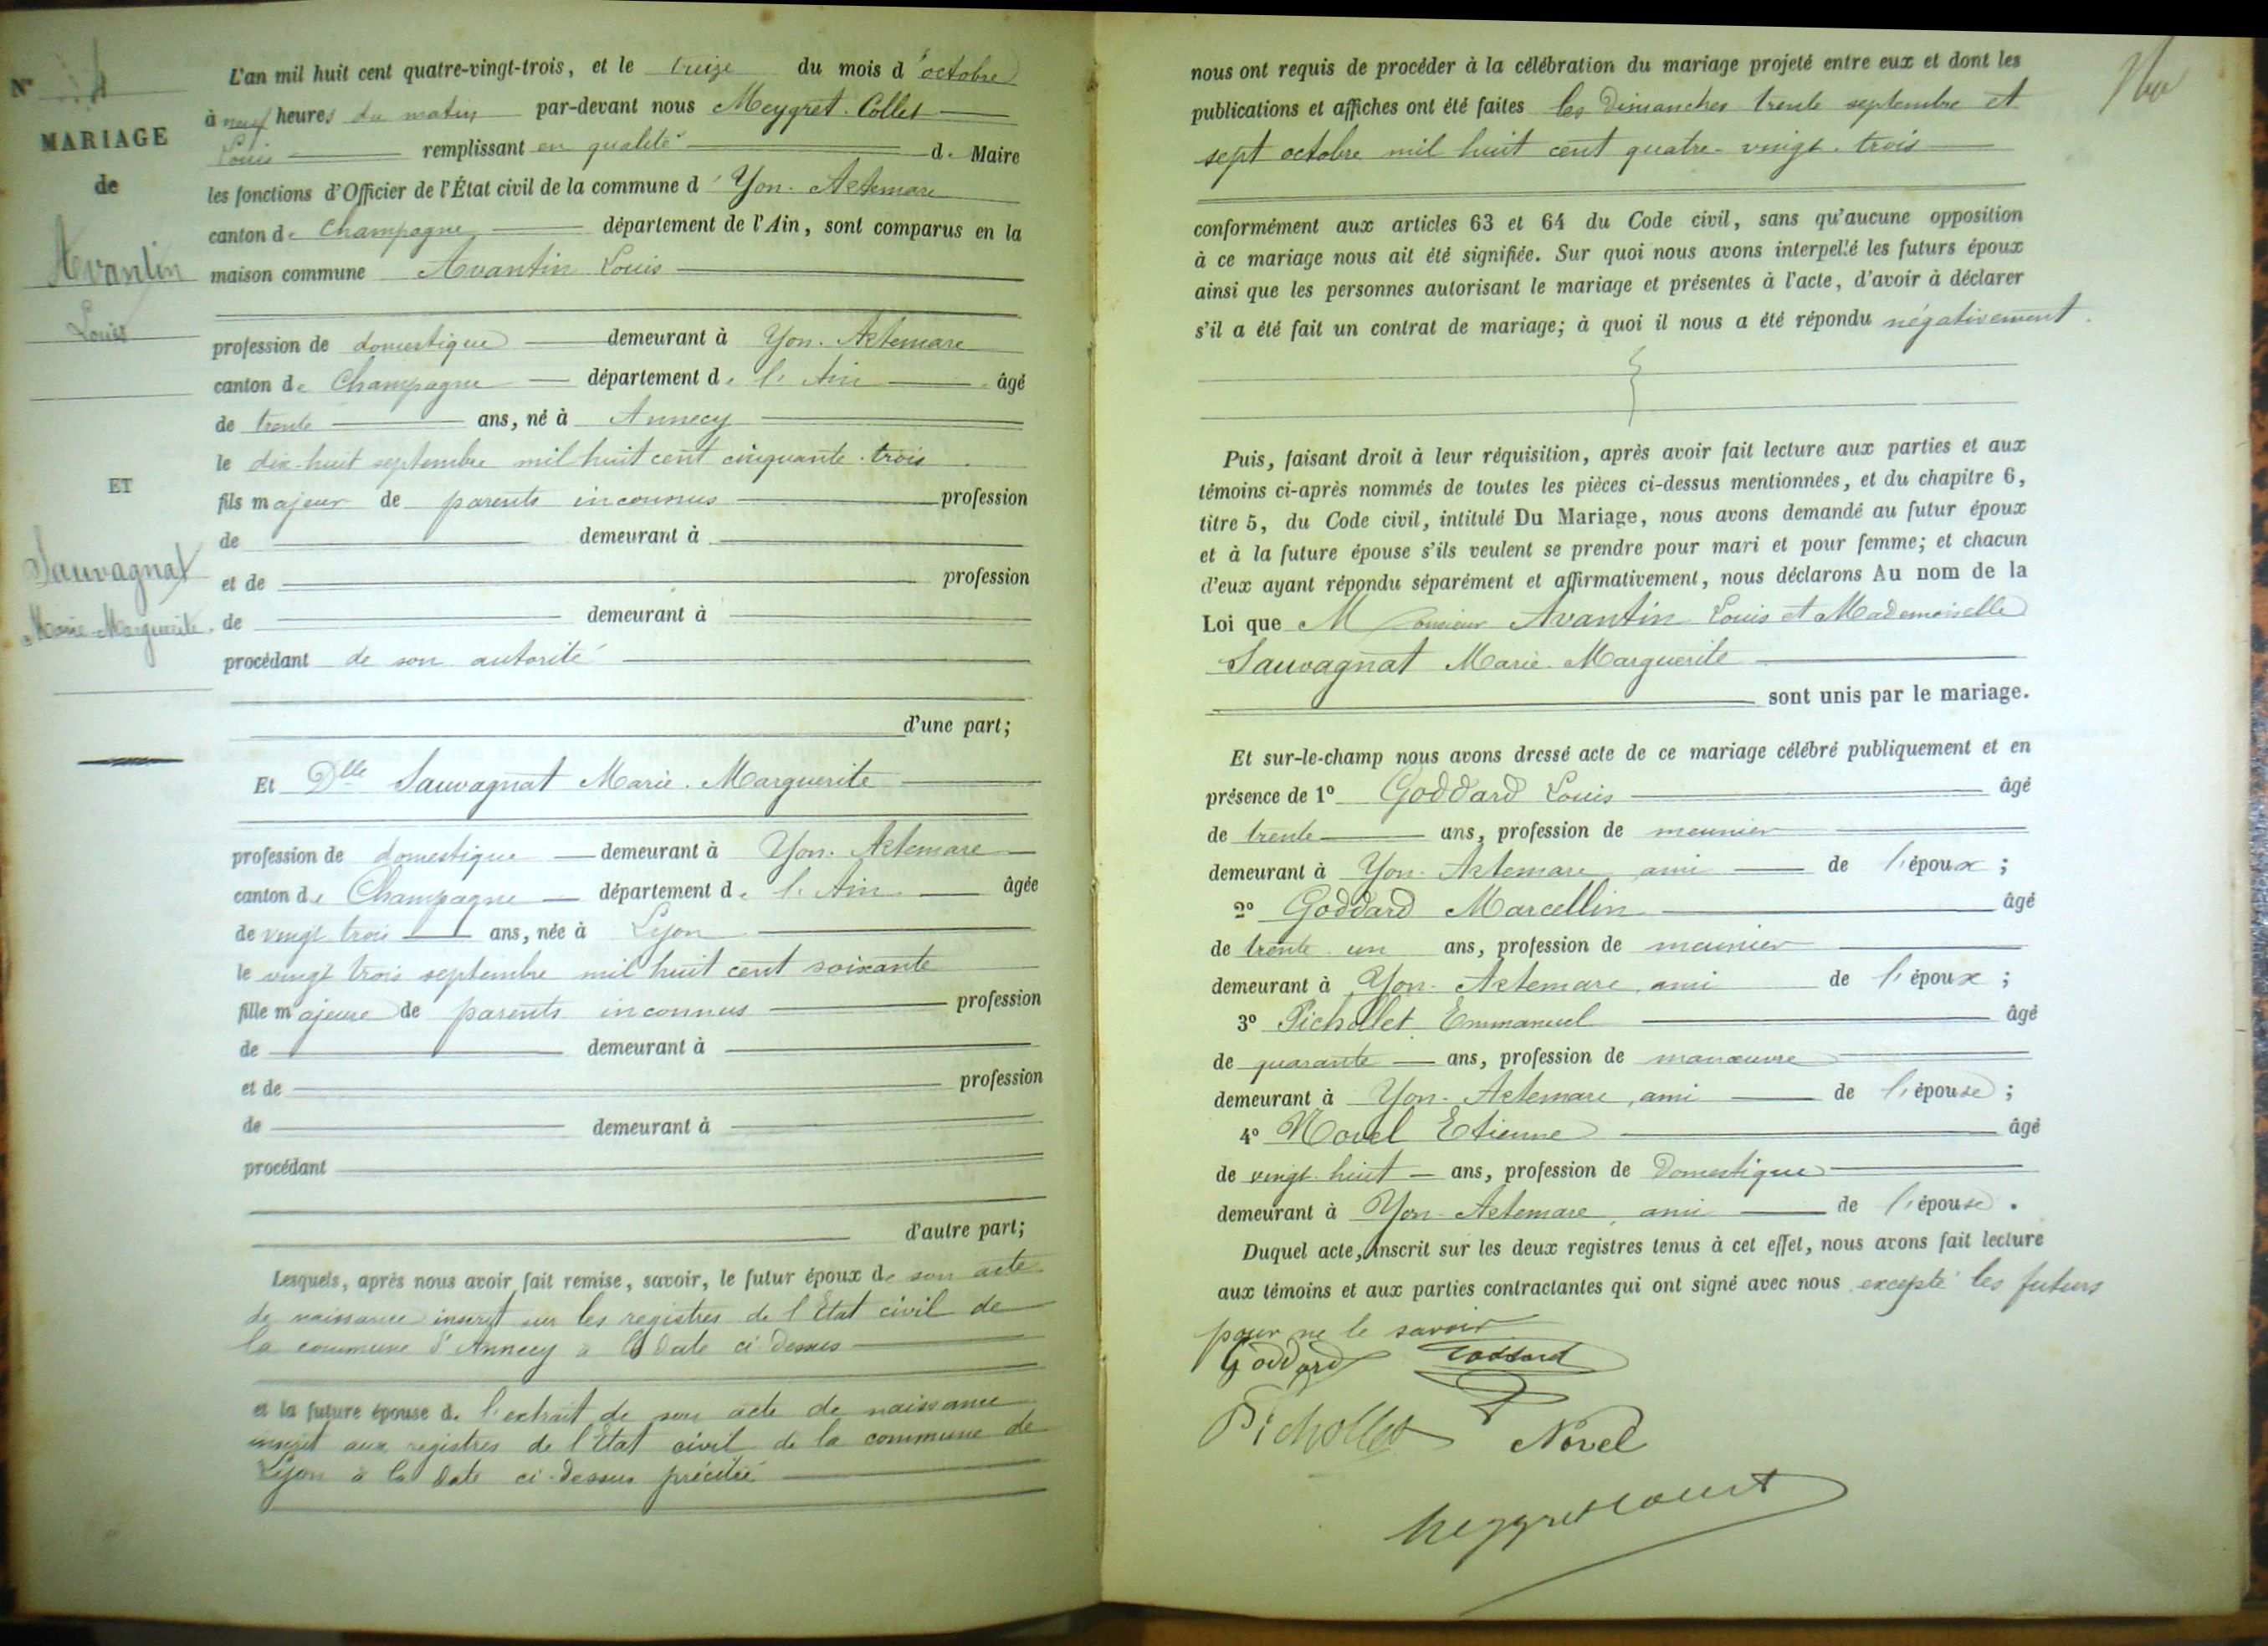 N°
MARIAGE
de
Avantin
Louis
ET
Sauvagnat
Marie-Marguerite.
L'an mil huit cent quatre-vingt-trois, et le treize du mois d'octobre
à neuf heures du matin par-devant nous Meygret-Collet
Louis remplissant en qualité de Maire
les fonctions d'Officier de l'État civil de la commune d'Yon-Artemare
canton de Champagne département de l'Ain, sont comparus en la
maison commune Avantin Louis
profession de domestique demeurant à Yon-Artemare
canton de Champagne département de l'Ain âgé
de trente ans, né à Annecy
le dix-huit septembre mil huit cent cinquante-trois
fils majeur de parents inconnus profession
de demeurant à
et de profession
de demeurant à
procédant de son autorité
d'une part;
Et Dlle Sauvagnat Marie-Marguerite
profession de domestique demeurant à Yon-Artemare
canton de Champagne département de l'Ain âgée
de vingt trois ans, née à Lyon
le vingt trois septembre mil huit cent soixante
fille majeure de parents inconnus profession
de demeurant à
et de profession
de demeurant à
procédant
d'autre part;
Lesquels, après nous avoir fait remise, savoir, le futur époux de son acte
de naissance inscrit sur les registres de l'Etat civil de
la commune d'Annecy à la date ci-dessus
et la future épouse de l'extrait de son acte de naissance
inscrit aux registres de l'Etat civil de la commune de
Lyon à la date ci-dessus précitée
nous ont requis de procéder à la célébration du mariage projeté entre eux et dont les
publications et affiches ont été faites les dimanches trente septembre et
sept octobre mil huit cent quatre-vingt-trois
conformément aux articles 63 et 64 du Code civil, sans qu'aucune opposition
à ce mariage nous ait été signifiée. Sur quoi nous avons interpellé les futurs époux
ainsi que les personnes autorisant le mariage et présentes à l'acte, d'avoir à déclarer
s'il a été fait un contrat de mariage; à quoi il nous a été répondu négativement.
Puis, faisant droit à leur réquisition, après avoir fait lecture aux parties et aux
témoins ci-après nommés de toutes les pièces ci-dessus mentionnées, et du chapitre 6,
titre 5, du Code civil, intitulé Du Mariage, nous avons demandé au futur époux
et à la future épouse s'ils veulent se prendre pour mari et pour femme; et chacun
d'eux ayant répondu séparément et affirmativement, nous déclarons Au nom de la
Loi que Monsieur Avantin Louis et Mademoiselle
Sauvagnat Marie-Marguerite
sont unis par le mariage.
Et sur-le-champ nous avons dressé acte de ce mariage célébré publiquement et en
présence de 1° Goddard Louis âgé
de trente ans, profession de meunier
demeurant à Yon-Artemare, ami de l'époux;
2° Goddard Marcellin âgé
de trente-un ans, profession de meunier
demeurant à Yon-Artemare, ami de l'époux;
3° Pichollet Emmanuel âgé
de quarante ans, profession de manœuvre
demeurant à Yon-Artemare, ami de l'épouse;
4° Novel Etienne âgé
de vingt-huit ans, profession de domestique
demeurant à Yon-Artemare, ami de l'épouse.
Duquel acte, inscrit sur les deux registres tenus à cet effet, nous avons fait lecture
aux témoins et aux parties contractantes qui ont signé avec nous excepté les futurs
pour ne le savoir
Goddard Goddard
Pichollet Novel
Meygret Collet